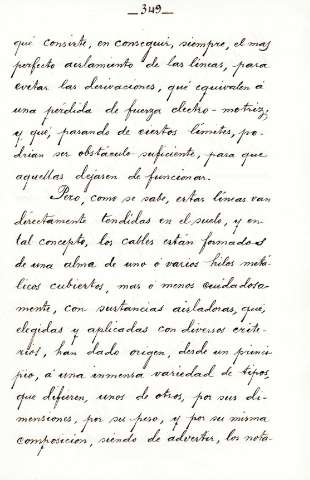 — 349 —
qué consiste, en conseguir, siempre, el mas
perfecto aislamiento de las líneas, para
evitar las derivaciones, qué equivalen á
una pérdida de fuerza electro-motriz;
y qué, pasando de ciertos límites, po-
drían ser obstáculo suficiente, para que
aquellas dejasen de funcionar.
Pero, como se sabe, estas líneas van
directamente tendidas en el suelo, y en
tal concepto, los cables están formados
de una alma de uno ó varios hilos metá-
licos cubiertos, mas ó menos cuidadosa-
mente, con sustancias aisladoras, qué,
elegidas y aplicadas con diversos crite-
rios, han dado origen, desde un princi-
pio, á una inmensa variedad de tipos,
que difieren, unos de otros, por sus di-
mensiones, por su peso, y por su misma
composicion, siendo de advertir, los nota-